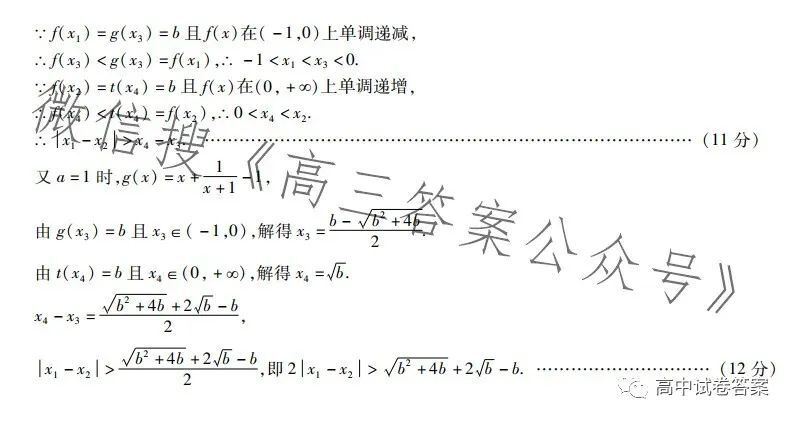 ∵ f(x₁) = g(x₃) = b 且 f(x) 在 ( -1,0) 上单调递减,
∴ f(x₃) < g(x₃) = f(x₁), ∴ -1 < x₁ < x₃ < 0.
∵ f(x₂) = t(x₄) = b 且 f(x) 在 (0, +∞) 上单调递增,
∴ f(x₄) < t(x₄) = f(x₂), ∴ 0 < x₄ < x₂.
∴ |x₁ - x₂| > x₄ - x₃. …… (11 分)
又 a = 1 时, g(x) = x + 1/(x+1) - 1,
由 g(x₃) = b 且 x₃ ∈ ( -1,0), 解得 x₃ = (b - √(b² + 4b))/2.
由 t(x₄) = b 且 x₄ ∈ (0, +∞), 解得 x₄ = √b.
x₄ - x₃ = (√(b² + 4b) + 2√b - b)/2,
|x₁ - x₂| > (√(b² + 4b) + 2√b - b)/2, 即 2|x₁ - x₂| > √(b² + 4b) + 2√b - b. …… (12 分)
微信搜《高三答案公众号》
高中试卷答案